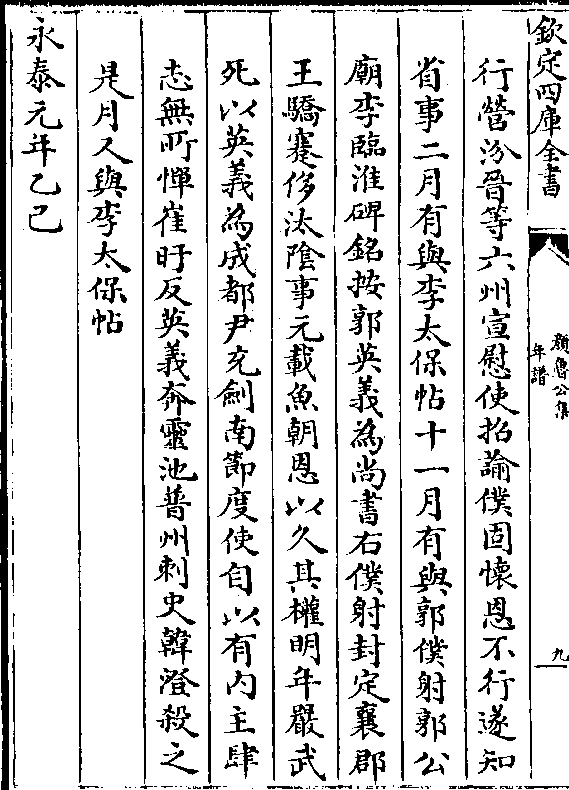 欽定四庫全書
顔魯公集
年譜
九
行營汾晉等六州宣慰使招諭僕固懷恩不行遂知
省事二月有與李太保帖十一月有與郭僕射郭公
廟李臨淮碑銘按郭英義為尚書右僕射封定襄郡
王驕蹇侈汰陰事元載魚朝恩以久其權明年嚴武
死以英義為成都尹充劍南節度使自以有内主肆
志無所憚崔旰反英義奔靈池普州刺史韓澄殺之
是月又與李太保帖
永泰元年乙巳